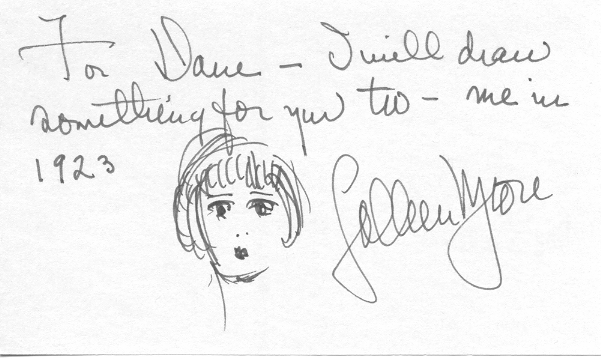 For Dave – I will draw
something for you too – me in
1923
Colleen Moore